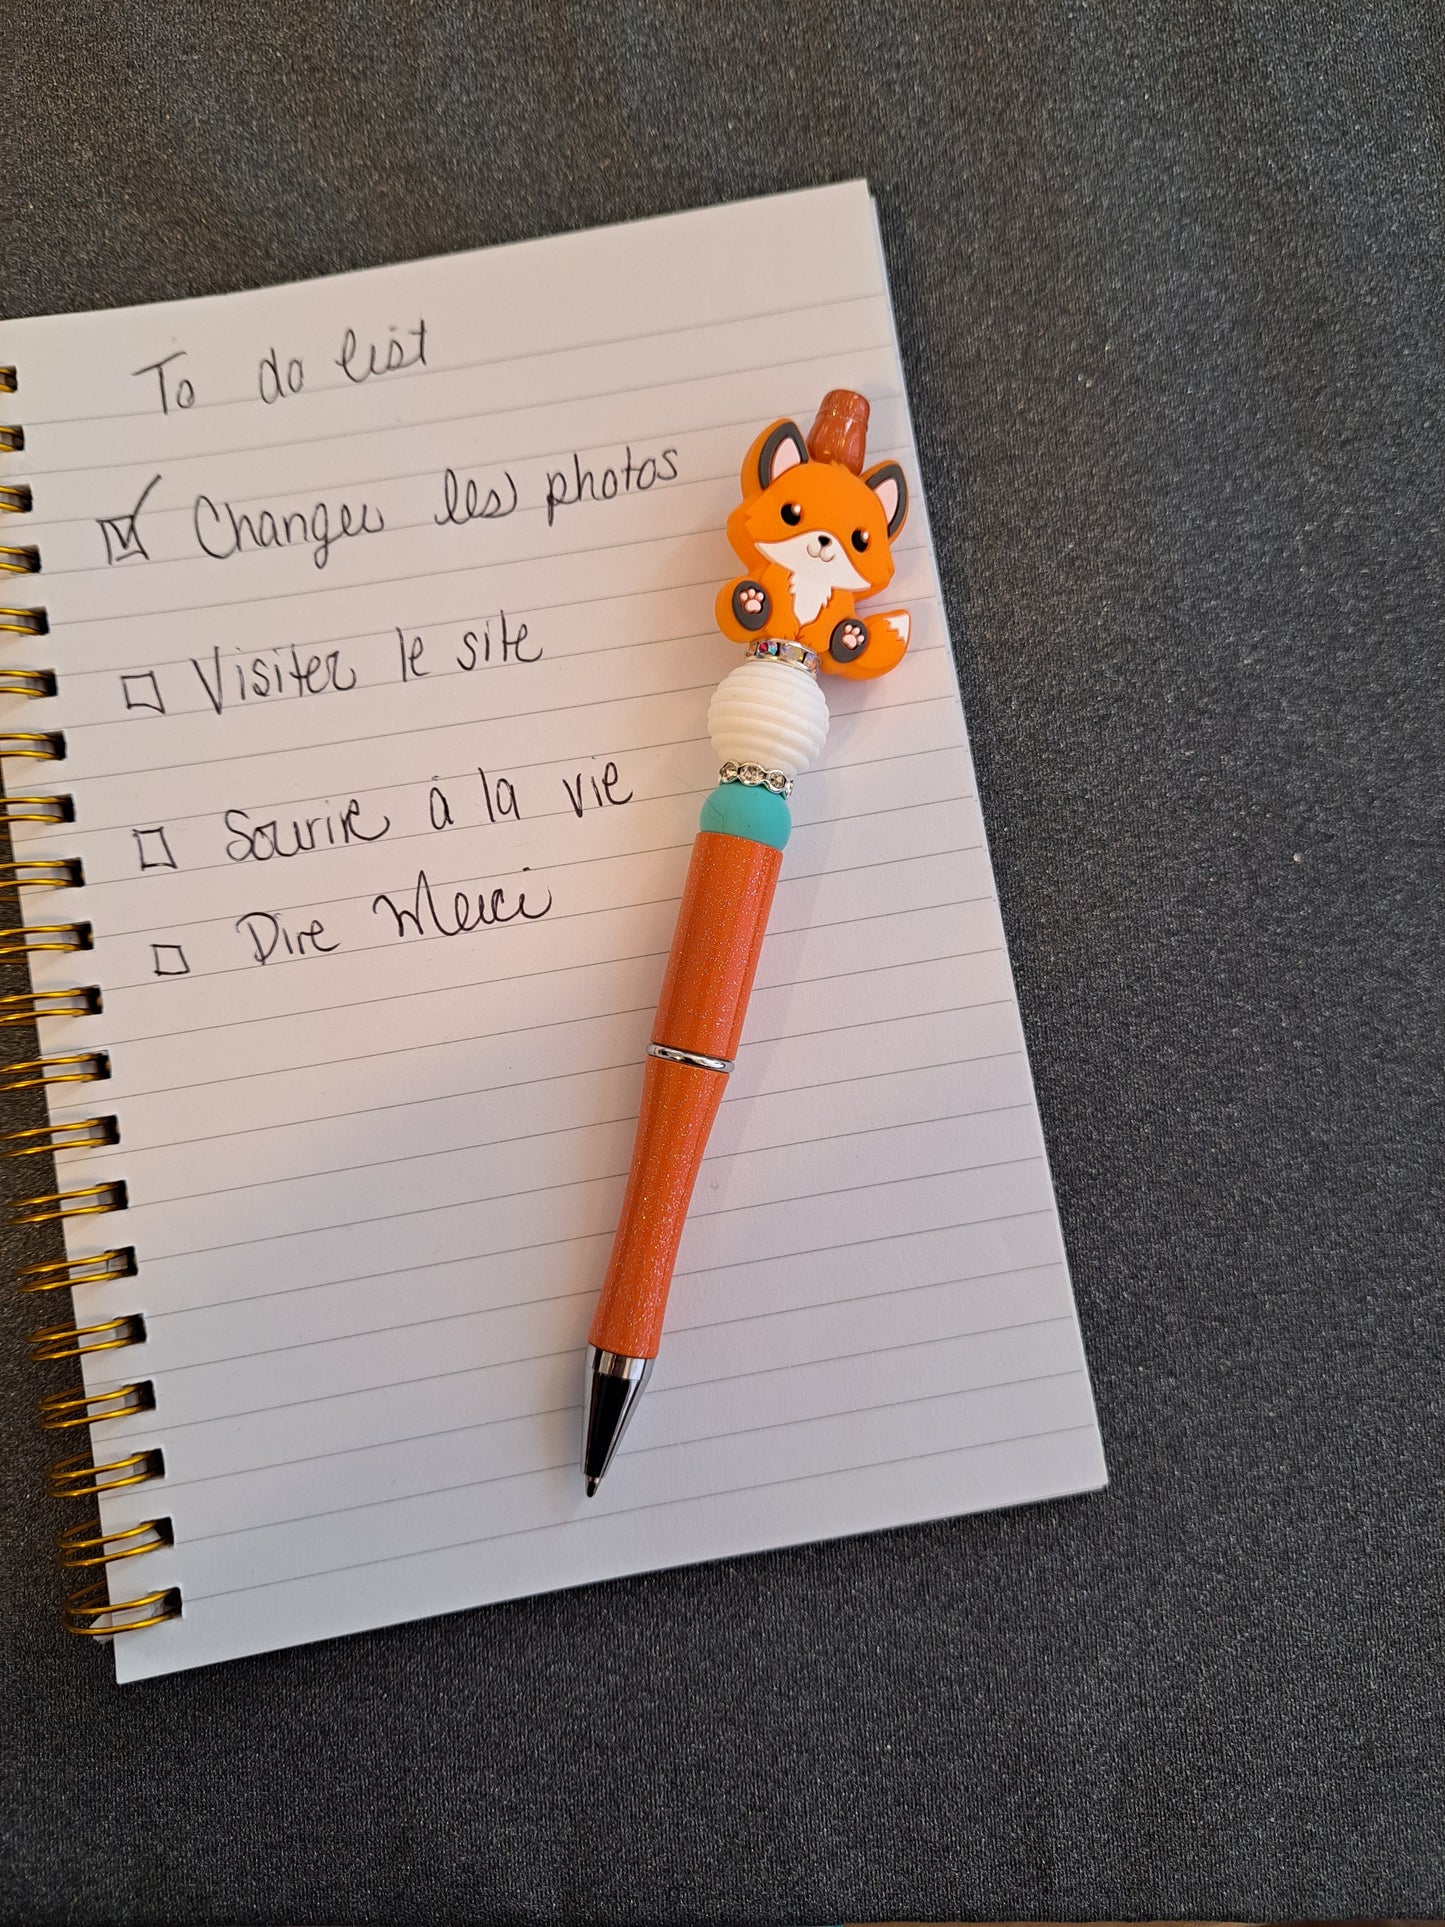 To do list
Changer les photos
Visiter le site
Sourire à la vie
Dire Merci